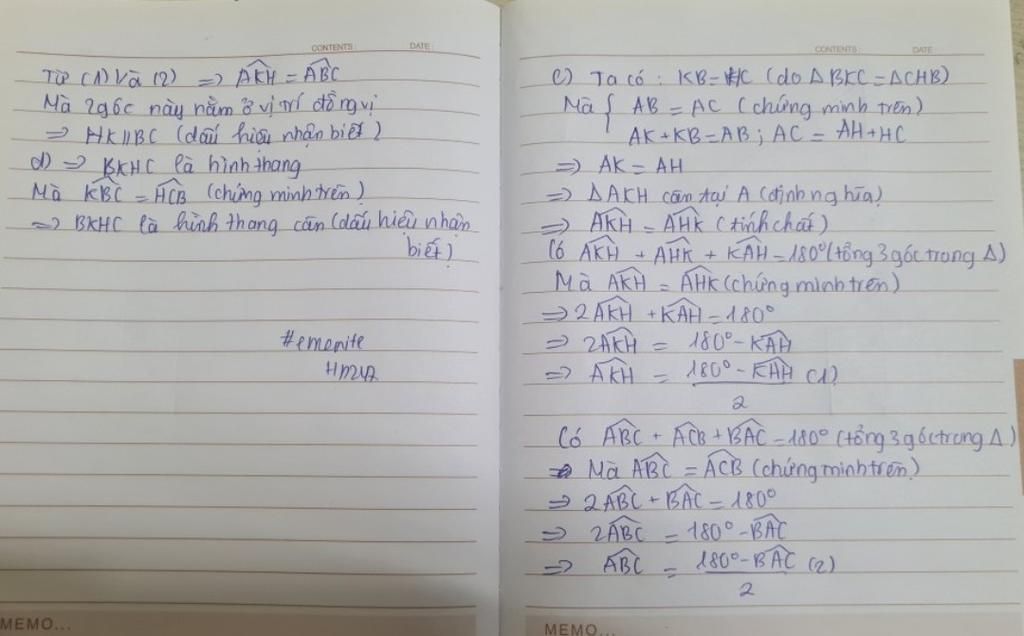 CONTENTS: DATE:
Từ (1) và (2) => AKH = ABC
Mà 2 góc này nằm ở vị trí đồng vị
=> HK // BC (dấu hiệu nhận biết)
d) => BKHC là hình thang
Mà KBC = HCB (chứng minh trên)
=> BKHC là hình thang cân (dấu hiệu nhận
biết)
MEMO...
CONTENTS: DATE
c) Ta có : KB = HC (do Δ BKC = ΔCHB)
Mà { AB = AC (chứng minh trên)
AK + KB = AB ; AC = AH + HC
=> AK = AH
=> ΔAKH cân tại A (định nghĩa)
=> AKH = AHK (tính chất)
Có AKH + AHK + KAH = 180° (tổng 3 góc trong Δ)
Mà AKH = AHK (chứng minh trên)
=> 2AKH + KAH = 180°
=> 2AKH = 180° - KAH
=> AKH = 180° - KAH (1)
2
Có ABC + ACB + BAC = 180° (tổng 3 góc trong Δ)
Mà ABC = ACB (chứng minh trên)
=> 2ABC + BAC = 180°
=> 2ABC = 180° - BAC
=> ABC = 180° - BAC (2)
2
MEMO...